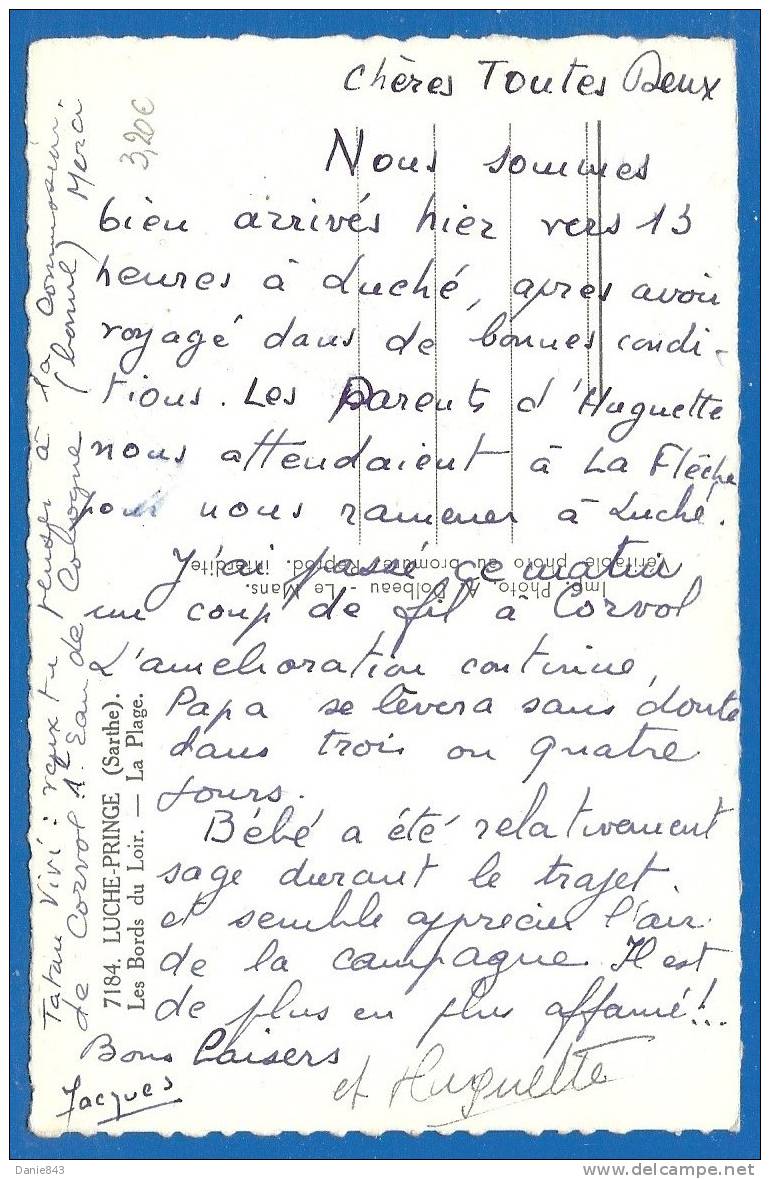 chères Toutes Deux
Nous sommes
bien arrivés hier vers 13
heures à Luché, apres avoir
voyagé dans de bonnes condi-
tions. Les Parents d'Huguette
nous attendaient à La Flèche
pour nous ramener à Luché.
J'ai passé ce matin
un coup de fil à Corvol
L'amelioration continue,
Papa se lèvera sans doute
dans trois ou quatre
jours.
Bébé a été relativement
sage durant le trajet
et semble apprecier l'air
de la campagne Il est
de plus en plus affamé!..
Bons baisers
Jacques
et Huguette
Tatan Vivi: veux tu penser à la commission
de Corvol: 1e Eau de Cologne (bonne) Merci
3,20€
7184. LUCHE-PRINGE (Sarthe).
Les Bords du Loir. — La Plage.
Imp. Photo. A. Dolbeau - Le Mans.
Véritable photo au bromure Reprod. interdite
Danie843
delcampe.net